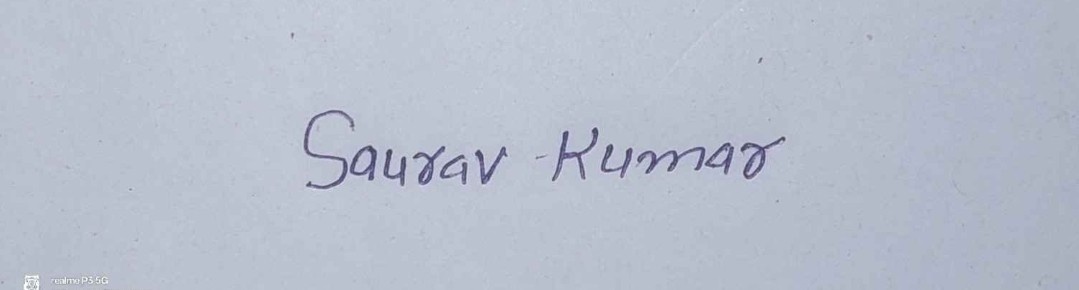 Saurav Kumar
realme P3 5G